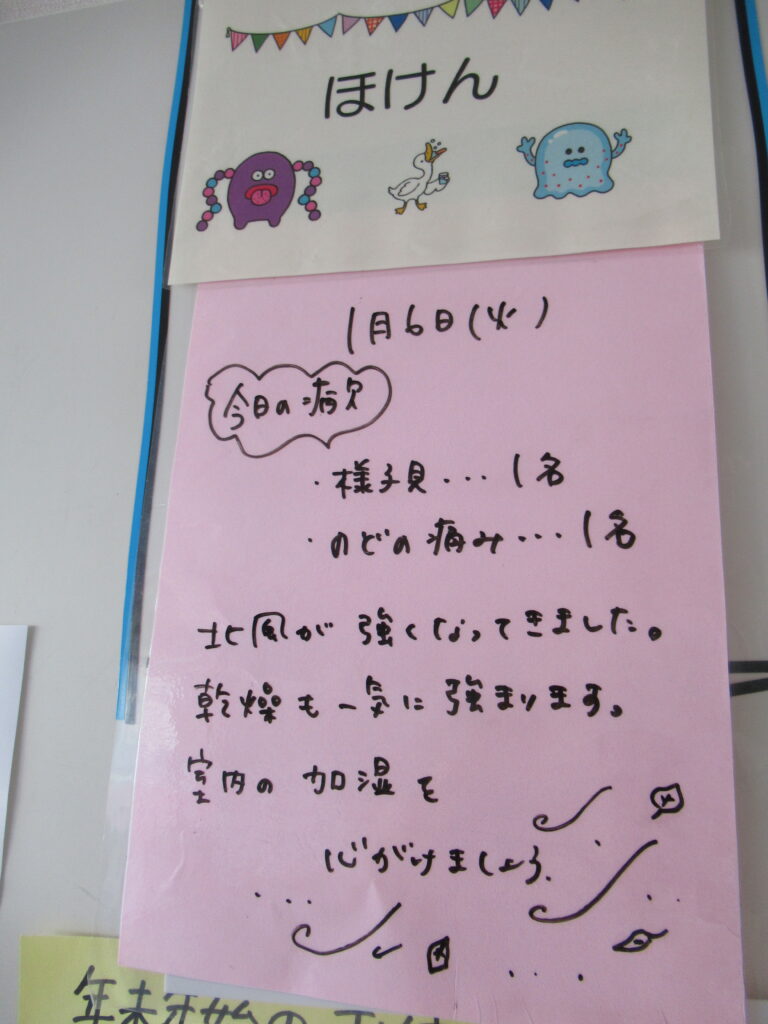 ほけん
1月6日(火)
今日の病欠
・様子見...1名
・のどの痛み...1名
北風が強くなってきました。
乾燥も一気に強まります。
室内の加湿を
心がけましょう.
年末年始の